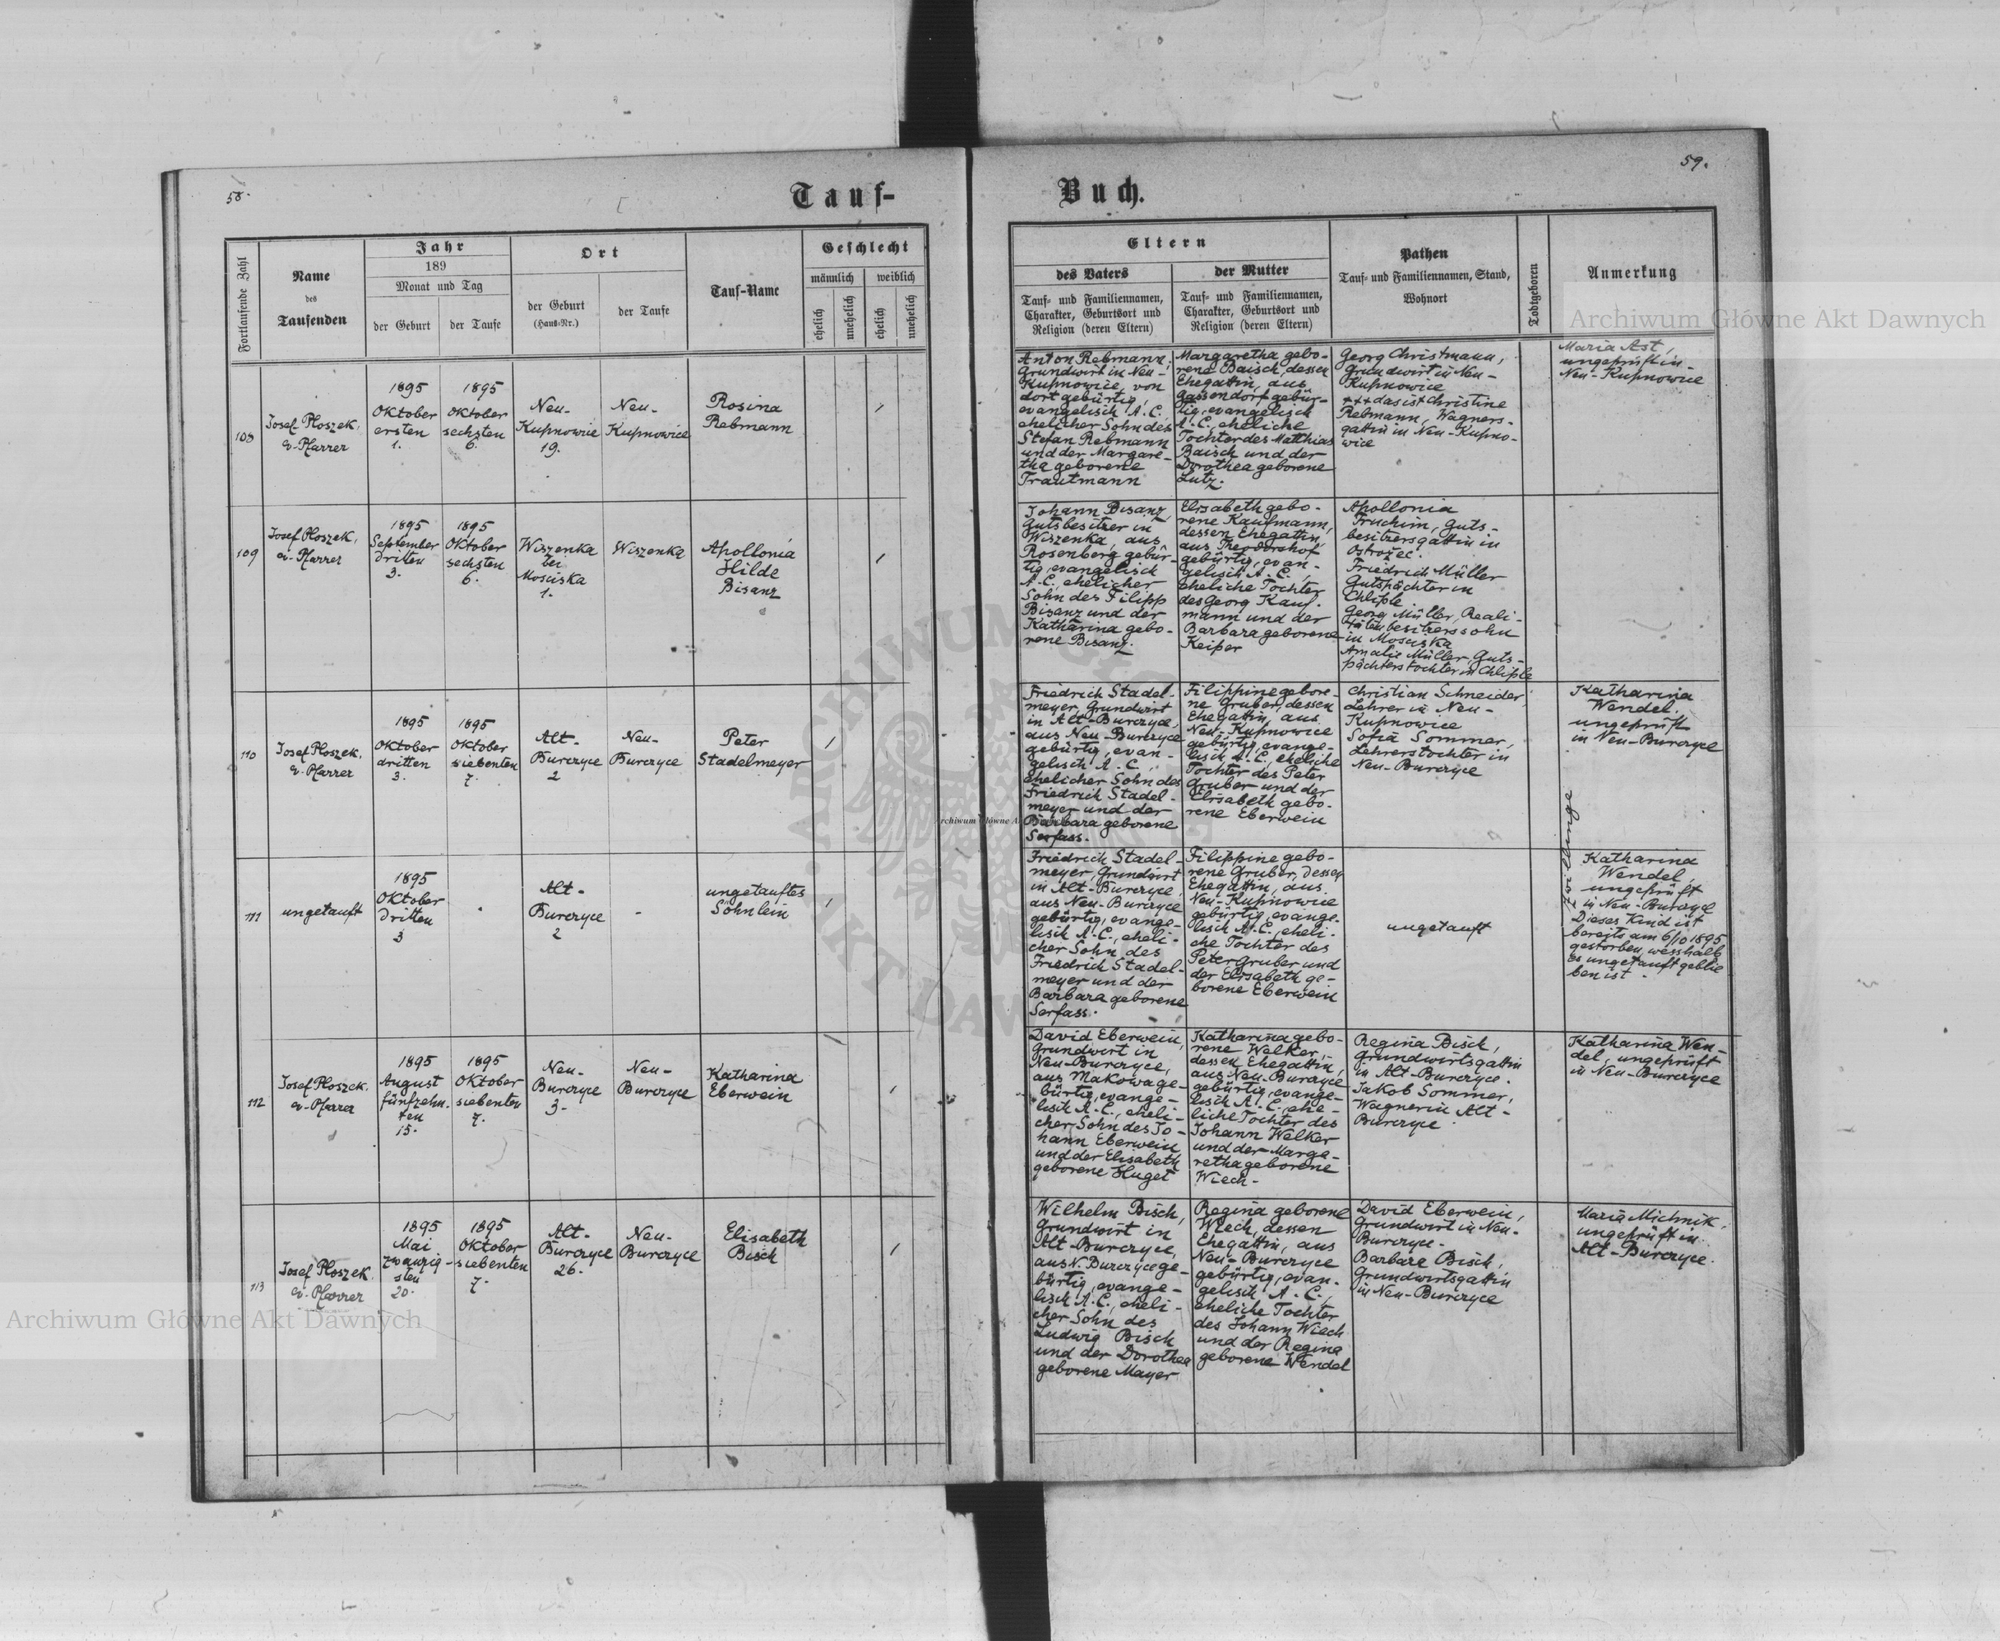 58.
Tauf-
Fortlaufende Zahl
Name
des
Taufenden
Jahr
189
Monat und Tag
der Geburt
der Taufe
Ort
der Geburt
(Haus-Nr.)
der Taufe
Tauf-Name
Geschlecht
männlich
weiblich
ehelich
unehelich
ehelich
unehelich
108
Josef Ploszek,
ev. Pfarrer
1895
Oktober
ersten
1.
1895
Oktober
sechsten
6.
Neu-
Kupnowice
19.
Neu-
Kupnowice
Rosina
Rebmann
109
Josef Ploszek,
ev. Pfarrer
1895
September
dritten
3.
1895
Oktober
sechsten
6.
Wiszenka
bei
Mosciska
1.
Wiszenka
Apollonia
Hilde
Bisanz
110
Josef Ploszek,
ev. Pfarrer
1895
Oktober
dritten
3.
1895
Oktober
siebenten
7.
Alt-
Burczyce
2
Neu-
Burczyce
Peter
Stadelmeyer
111
ungetauft
1895
Oktober
Dritten
3
Alt-
Burczyce
2
-
ungetauftes
Söhnlein
112
Josef Ploszek,
ev. Pfarrer
1895
August
fünfzehn-
ten
15.
1895
Oktober
siebenten
7.
Neu-
Burczyce
3.
Neu-
Burczyce
Katharina
Eberwein
113
Josef Ploszek
ev. Pfarrer
1895
Mai
zwanzig-
sten
20.
1895
Oktober
siebenten
7.
Alt-
Burczyce
26.
Neu-
Burczyce
Elisabeth
Bisch
59.
Buch.
Eltern
des Vaters
Tauf- und Familiennamen,
Charakter, Geburtsort und
Religion (deren Eltern)
der Mutter
Tauf- und Familiennamen,
Charakter, Geburtsort und
Religion (deren Eltern)
Pathen
Tauf- und Familiennamen, Stand,
Wohnort
Todtgeboren
Anmerkung
Anton Rebmann,
Grundwirt in Neu-
Kupnowice, von
dort gebürtig,
evangelisch A.C.,
ehelicher Sohn des
Stefan Rebmann
und der Margare-
tha geborene
Trautmann
Margaretha gebo-
rene Baisch, dessen
Ehegattin, aus
Gassendorf gebür-
tig, evangelisch
A.C., eheliche
Tochter des Matthias
Baisch und der
Dorothea geborene
Lutz.
Georg Christmann,
Grundwirt in Neu-
Kupnowice
+++ das ist Christine
Rebmann, Wagners-
gattin in Neu-Kupno-
wice
Maria Ast,
ungeprüft in
Neu-Kupnowice
Johann Bisanz,
Gutsbesitzer in
Wiszenka, aus
Rosenberg gebür-
tig, evangelisch
A.C., ehelicher
Sohn des Filipp
Bisanz und der
Katharina gebo-
rene Bisanz.
Elisabeth gebo-
rene Kaufmann,
dessen Ehegattin,
aus Theodorshof
gebürtig, evan-
gelisch A.C.,
eheliche Tochter
des Georg Kauf-
mann und der
Barbara geborene
Keiper
Apollonia
Fruchim, Guts-
besitzersgattin in
Ostrožec.
Friedrich Müller
Gutspächter in
Chliple
Georg Müller, Reali-
tätenbesitzerssohn
in Mosciska
Amalie Müller, Guts-
pächterstochter in Chliple
Friedrich Stadel-
meyer, Grundwirt
in Alt-Burczyce,
aus Neu-Burczyce
gebürtig, evan-
gelisch A.C.,
ehelicher Sohn des
Friedrich Stadel-
meyer und der
Barbara geborene
Serfass.
Filippine gebore-
ne Gruber, dessen
Ehegattin, aus
Neu-Kupnowice
gebürtig, evange-
lisch A.C., eheliche
Tochter des Peter
Gruber und der
Elisabeth gebo-
rene Eberwein
Christian Schneider,
Lehrer in Neu-
Kupnowice
Sofia Sommer,
Lehrerstochter in
Neu-Burczyce
Katharina
Wendel,
ungeprüft
in Neu-Burczyce
Zwillinge
Friedrich Stadel-
meyer, Grundwirt
in Alt-Burczyce,
aus Neu-Burczyce
gebürtig, evange-
lisch A.C., eheli-
cher Sohn des
Friedrich Stadel-
meyer und der
Barbara geborene
Serfass.
Filippine gebo-
rene Gruber, dessen
Ehegattin, aus
Neu-Kupnowice
gebürtig, evange-
lisch A.C., eheli-
che Tochter des
Peter Gruber und
der Elisabeth ge-
borene Eberwein
ungetauft
Katharina
Wendel,
ungeprüft
in Neu-Burczyce
Dieses Kind ist
bereits am 6/10 1895
gestorben, wesshalb
es ungetauft geblie
ben ist.
David Eberwein,
Grundwirt in
Neu-Burczyce,
aus Makowa ge-
bürtig, evange-
lisch A.C., eheli-
cher Sohn des Jo-
hann Eberwein
und der Elisabeth
geborene Huget
Katharina gebo-
rene Welker,
dessen Ehegattin,
aus Neu-Burczyce
gebürtig, evange-
lisch A.C., ehe-
liche Tochter des
Johann Welker
und der Marga-
retha geborene
Wiech.
Regina Bisch,
Grundwirtsgattin
in Alt-Burczyce.
Jakob Sommer,
Wagner in Alt-
Burczyce
Katharina Wen-
del, ungeprüft
in Neu-Burczyce
Wilhelm Bisch,
Grundwirt in
Alt-Burczyce,
aus N. Burczyce ge-
bürtig, evange-
lisch A.C., eheli-
cher Sohn des
Ludwig Bisch
und der Dorothea
geborene Mayer
Regina geborene
Wiech, dessen
Ehegattin, aus
Neu-Burczyce
gebürtig, evan-
gelisch A.C.,
eheliche Tochter
des Johann Wiech
und der Regina
geborene Wendel
David Eberwein,
Grundwirt in Neu-
Burczyce.
Barbara Bisch,
Grundwirtsgattin
in Neu-Burczyce
Maria Michnik,
ungeprüft in
Alt-Burczyce.
Archiwum Główne Akt Dawnych
Archiwum Główne Akt Dawnych